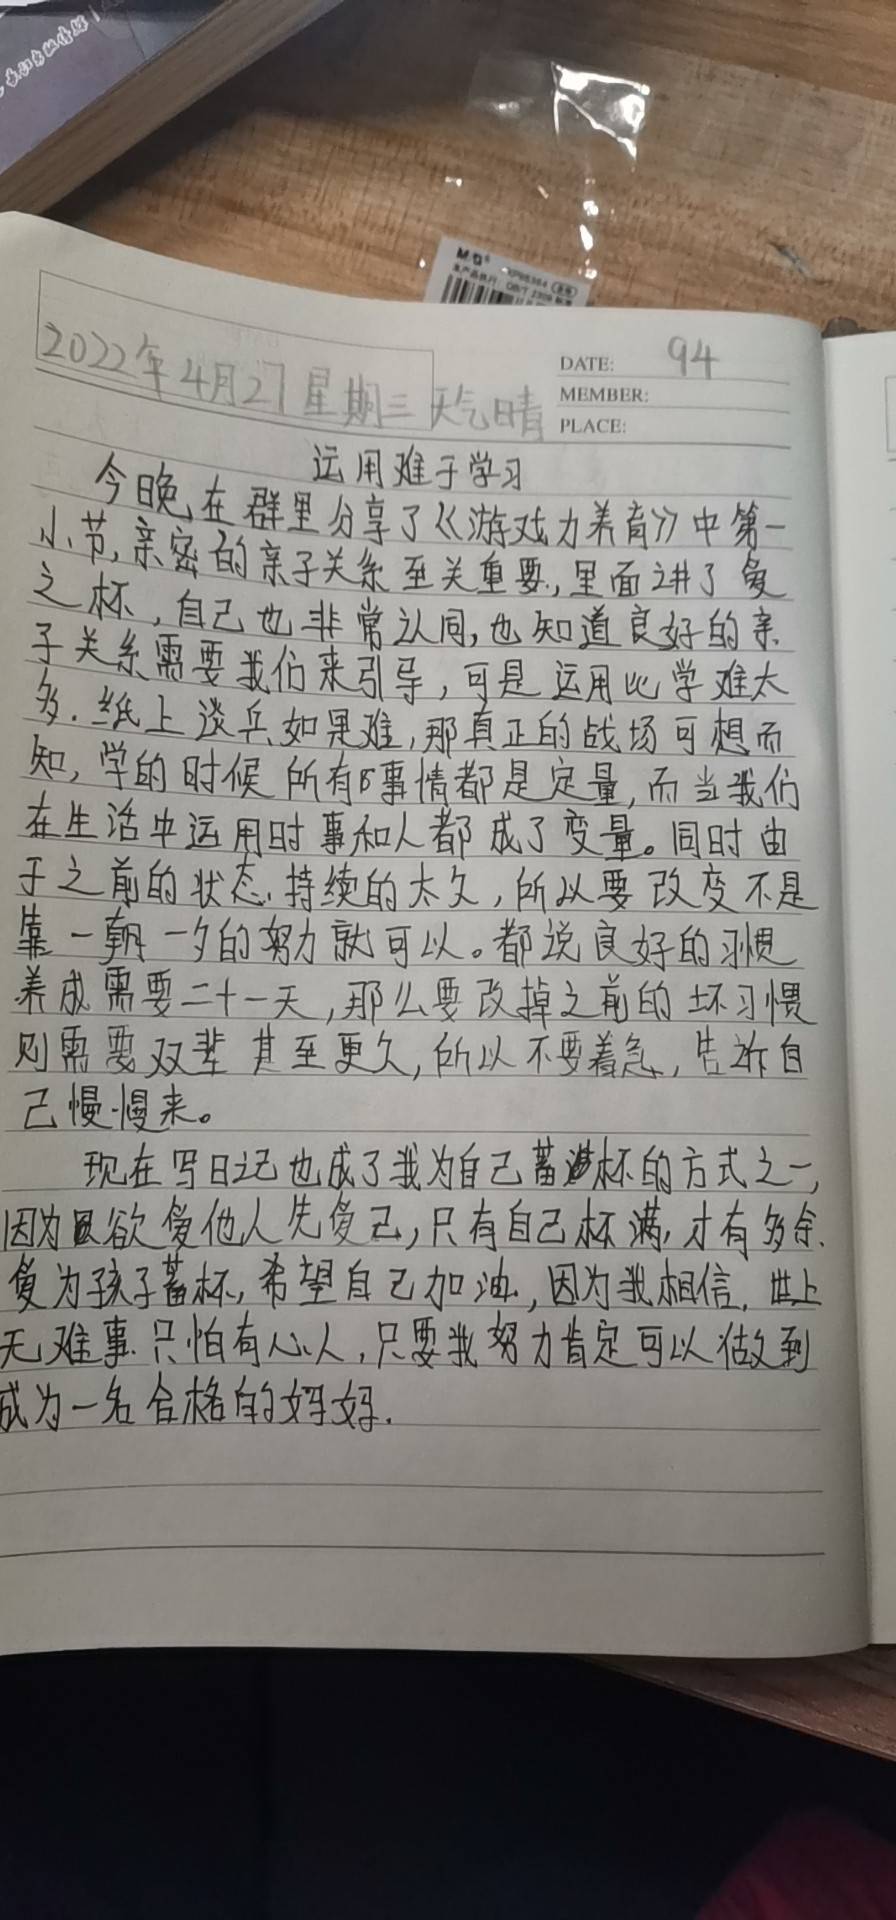 M&G
2022年4月27星期三 天气晴
DATE: 94
MEMBER:
PLACE:
运用难于学习
今晚在群里分享了《游戏力养育》中第一
小节,亲密的亲子关系至关重要,里面讲了爱
之杯,自己也非常认同,也知道良好的亲
子关系需要我们来引导,可是运用比学难太
多.纸上谈兵如果难,那真正的战场可想而
知,学的时候所有的事情都是定量,而当我们
在生活中运用时事和人都成了变量。同时由
于之前的状态,持续的太久,所以要改变不是
靠一朝一夕的努力就可以。都说良好的习惯
养成需要二十一天,那么要改掉之前的坏习惯
则需要双辈甚至更久,所以不要着急,告诉自
己慢慢来。
现在写日记也成了我为自己蓄满杯的方式之一,
因为欲爱他人先爱己,只有自己杯满,才有多余
爱为孩子蓄杯,希望自己加油,因为我相信,世上
无难事只怕有心人,只要我努力肯定可以做到
成为一名合格的妈妈.